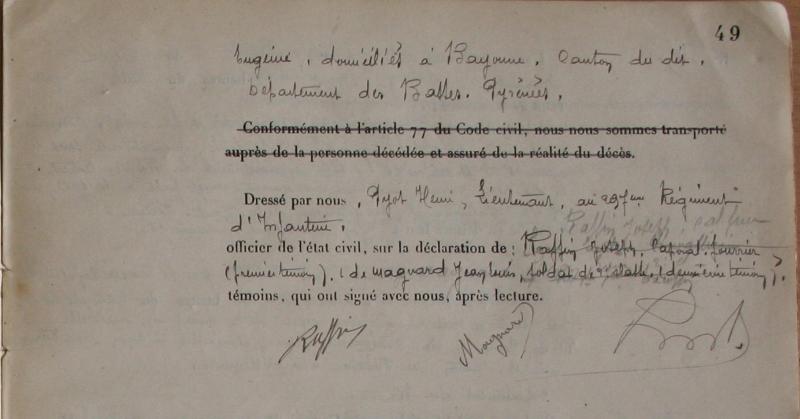 49
Eugénie, domiciliés à Bayonne. Canton du dit.
Département des Basses-Pyrénées.
Conformément à l'article 77 du Code civil, nous nous sommes transporté
auprès de la personne décédée et assuré de la réalité du décès.
Dressé par nous, Henri, Lieutenant, au 297me Régiment
d'Infanterie.
officier de l'état civil, sur la déclaration de : Raffin Joseph, Caporal fourrier
(premier témoin), de Magnard Jean Louis, soldat de classe, (deuxième témoin).
témoins, qui ont signé avec nous, après lecture.
Raffin Magnard